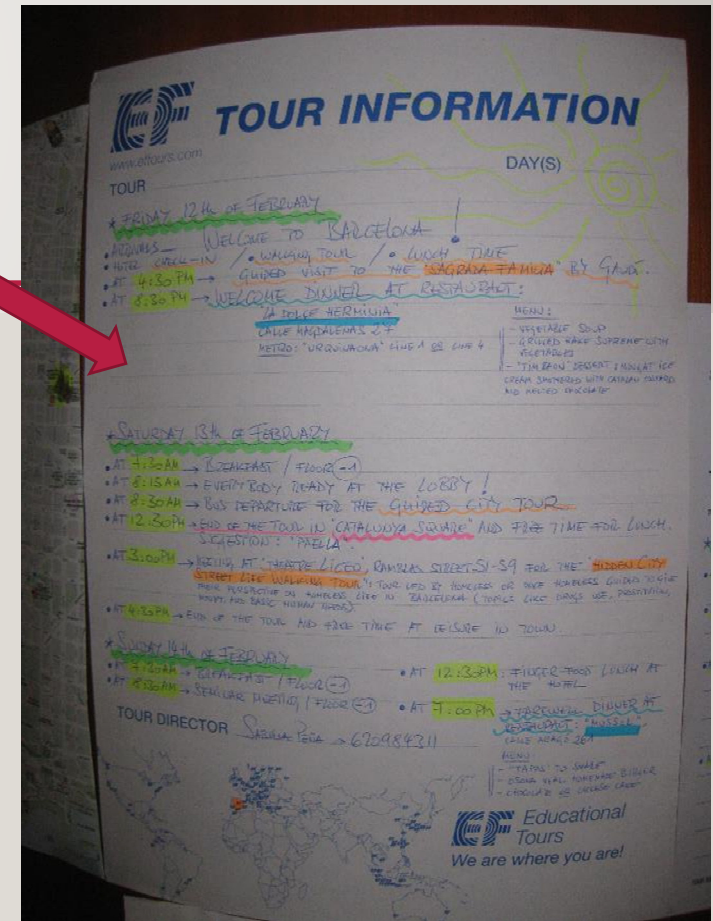 EF TOUR INFORMATION
www.eftours.com
TOUR DAY(S)
* FRIDAY 12th OF FEBRUARY
• ARRIVALS — WELCOME TO BARCELONA !
• HOTEL CHECK-IN / • WALKING TOUR / • LUNCH TIME
• AT 4:30 PM → GUIDED VISIT TO THE "SAGRADA FAMILIA" BY GAUDÍ.
• AT 8:30 PM → WELCOME DINNER AT RESTAURANT:
"LA DOLCE HERMINIA"
CALLE MAGDALENAS 27
METRO: "URQUINAONA" LINE 1 OR LINE 4
MENU:
- VEGETABLE SOUP
- GRILLED HAKE SUPREME WITH
VEGETABLES
DESSERT : NOUGAT ICE
CREAM SMOTHERED WITH CATALAN CUSTARD
AND MELTED CHOCOLATE
* SATURDAY 13th OF FEBRUARY
• AT 7:30 AM → BREAKFAST / FLOOR -1
• AT 8:15 AM → EVERYBODY READY AT THE LOBBY !
• AT 8:30 AM → BUS DEPARTURE FOR THE GUIDED CITY TOUR
• AT 12:30 PM → END OF THE TOUR IN "CATALUNYA SQUARE" AND FREE TIME FOR LUNCH.
SUGESTION : "PAELLA"
• AT 3:00 PM → MEETING AT "THEATRE LICEO", RAMBLAS STREET 51-59 FOR THE "HIDDEN CITY
STREET LIFE WALKING TOUR" TOUR LED BY HOMELESS OR ONCE HOMELESS GUIDES TO GIVE
THEIR PERSPECTIVE ON HOMELESS LIFE IN BARCELONA (TOPICS LIKE DRUGS USE, PROSTITUTION,
AND BASIC HUMAN NEEDS).
• AT 4:30 PM → END OF THE TOUR AND FREE TIME AT LEISURE IN TOWN...
* SUNDAY 14th OF FEBRUARY
• AT 7:30 AM → BREAKFAST / FLOOR -1
• AT 8:30 AM → SEMINAR MEETING / FLOOR -1
• AT 12:30 PM : FINGER-FOOD LUNCH AT
THE HOTEL
• AT 7:00 PM → FAREWELL DINNER AT
RESTAURANT : "MUSSOL"
CALLE ARAGÓ 261
MENU:
- "TAPAS" TO SHARE
VEAL HOMEMADE BURGER
- CHOCOLATE OR CHEESE CAKE
TOUR DIRECTOR → 620984311
EF Educational
Tours
We are where you are!